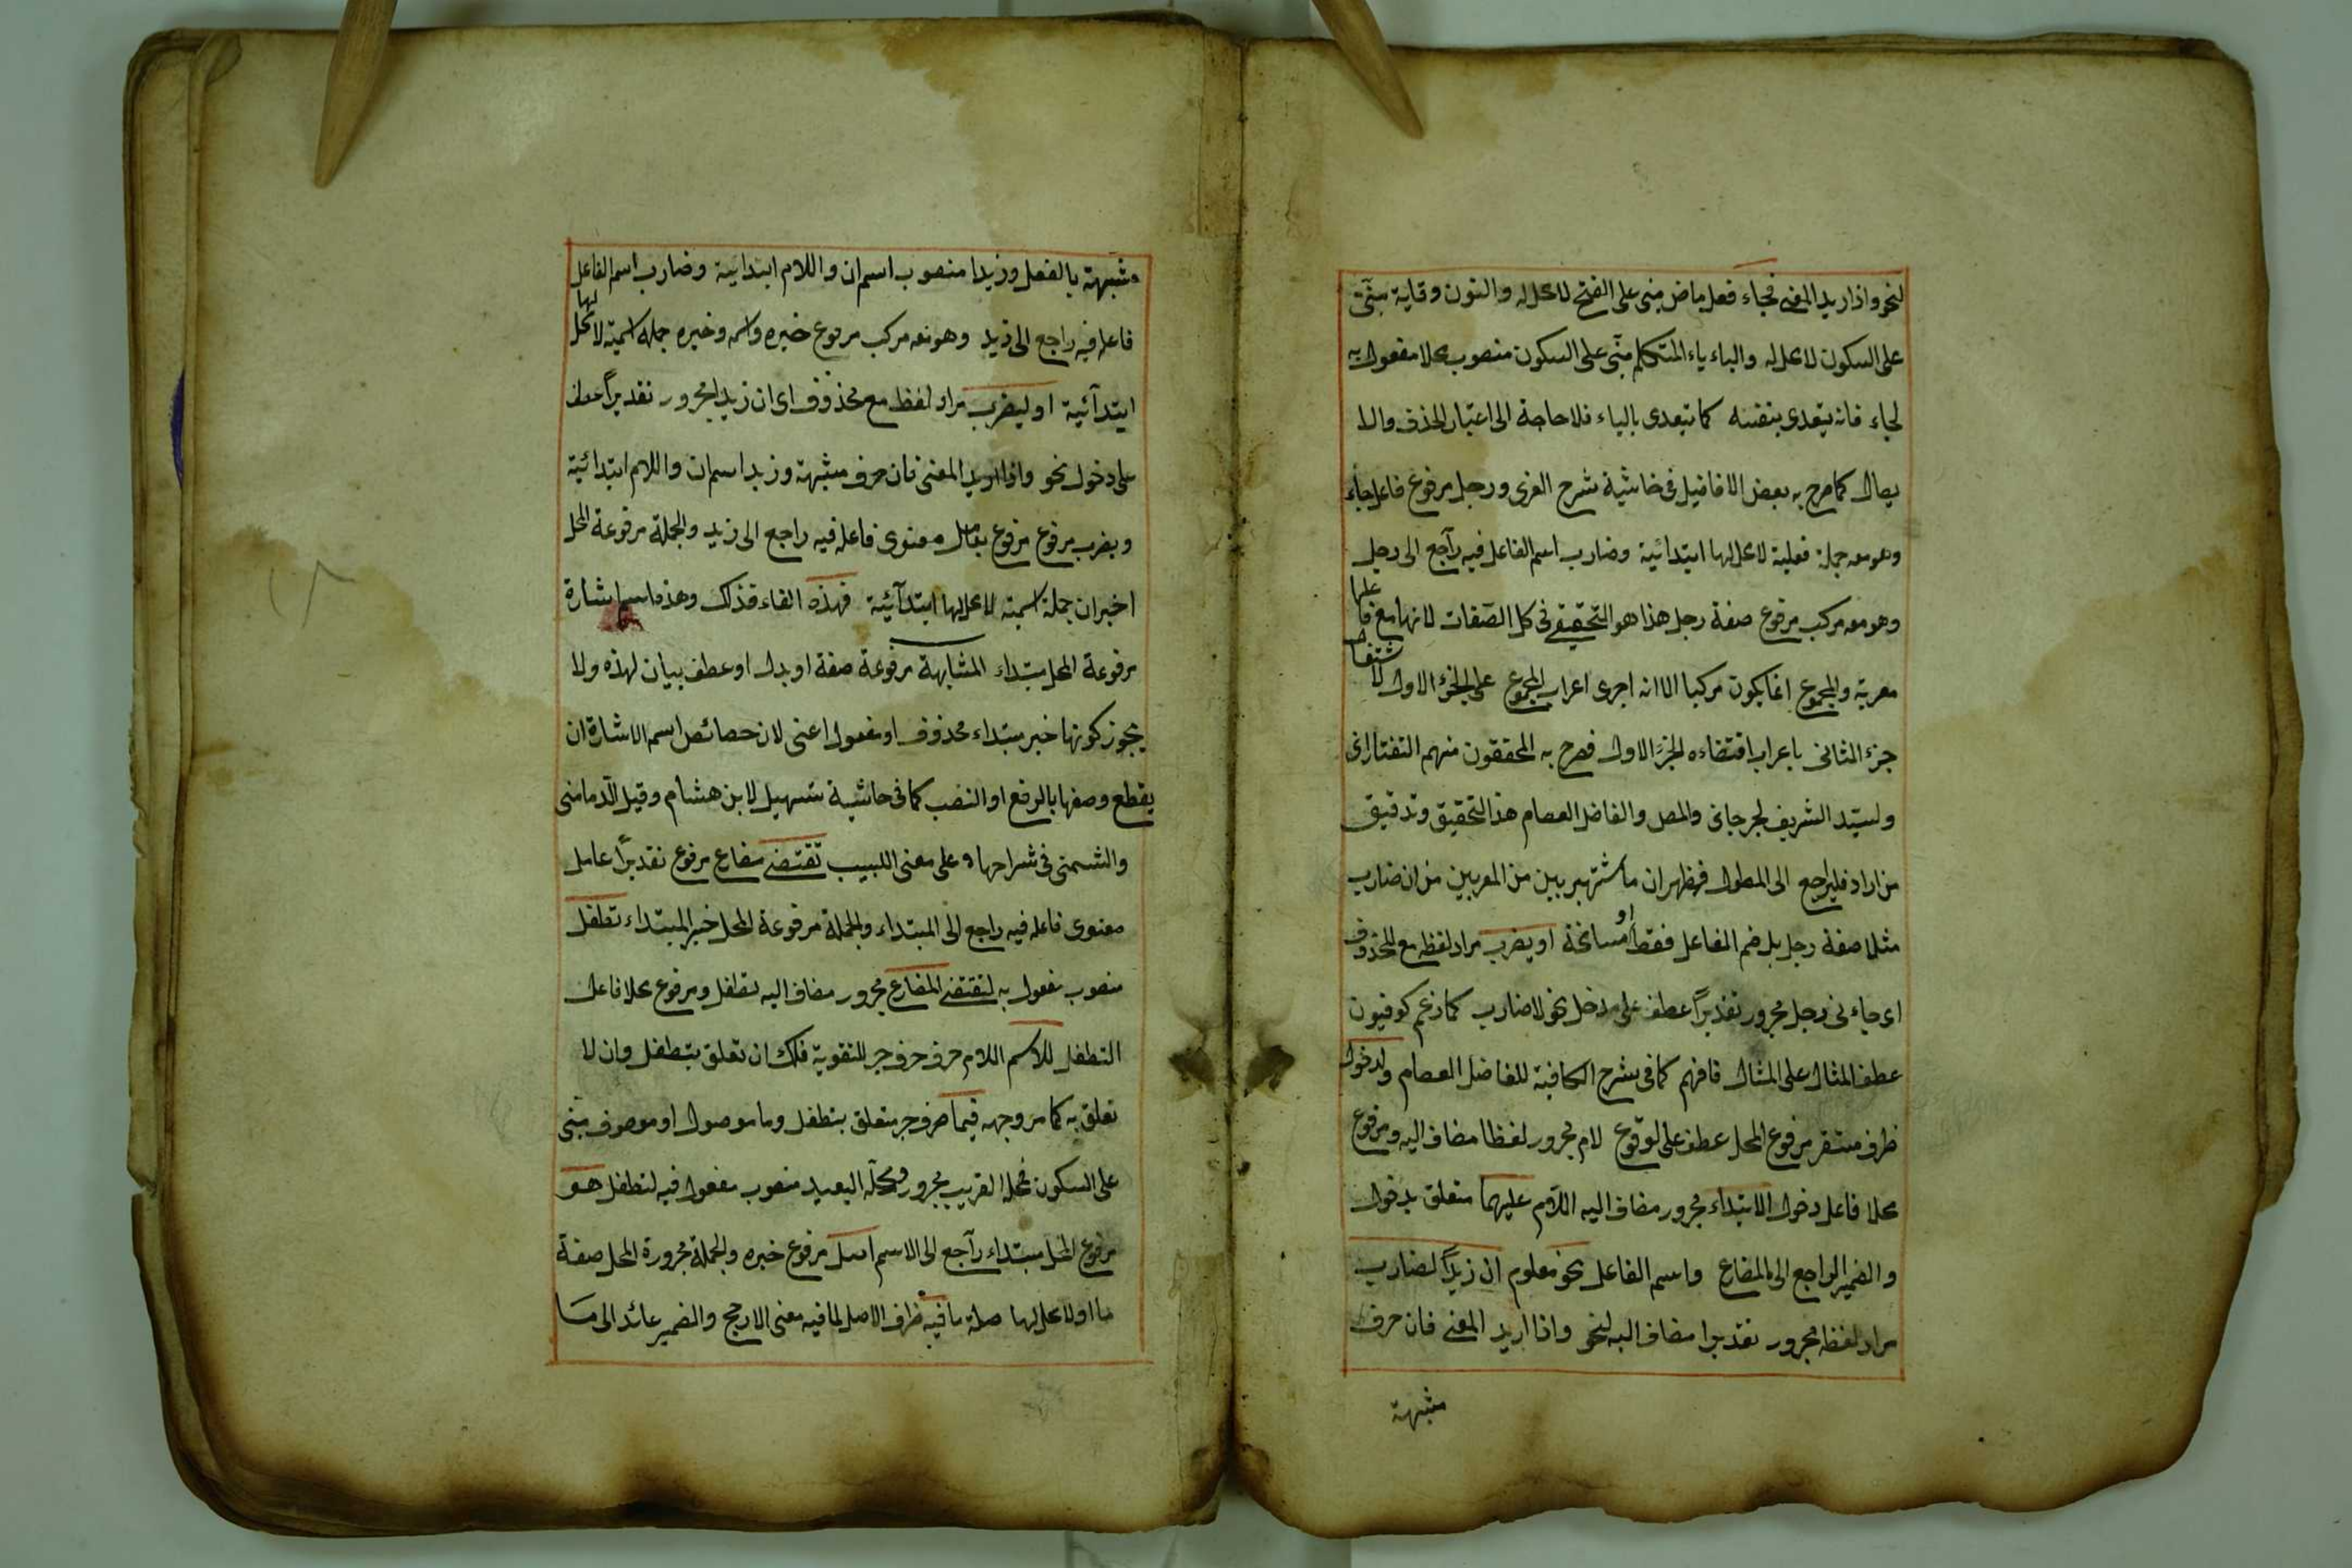 لنحو واذا اريد المعنى فجاء فعل ماض مبنى على الفتح لا محل له والنون وقاية مبنى
على السكون لا محل له والياء ياء المتكلم مبنى على السكون منصوب محلا مفعول به
لجاء فانه يتعدى بنفسه كما يتعدى بالياء فلا حاجة الى اعتبار الحذف والا
يصال كما صرح به بعض الافاضيل فى حاشية شرح العزى ورجل مرفوع فاعل جاء
وهو معه جملة فعلية لا محل لها ابتدائية وضارب اسم الفاعل فيه راجع الى رجل
وهو معه مركب مرفوع صفة رجل هذا هو التحقيق فى كل الصفات لانها مع فاعلها
معربة والمجموع انما يكون مركبا الا انه اجرى اعراب المجموع على الجزء الاول لاشتغال
جزء الثانى باعراب اقتضاءه الجزء الاول فصرح به المحققون منهم التفتازانى
ولسيد الشريف لجرجانى والمص والفاضل العصام هذا التحقيق وتدقيق
من اراد فليراجع الى المطول فيظهر ان ما اشتهر بين من المعربين من ان ضارب
مثلا صفة رجل بل ضم الفاعل فقط او مسامحة او يضرب مراد لفظه مع المحذوف
اى جاءنى رجل مجرور تقديرا عطف على مدخل نحو لا ضارب كما زعم كوفيون
عطف المثال على المثال فافهم كما فى شرح الكافية للفاضل العصام ولدخول
ظرف مستقر مرفوع المحل عطف على لوقوع لام مجرور لفظا مضاف اليه ومرفوع
محلا فاعل دخول الابتداء مجرور مضاف اليه اللام عليهما متعلق بدخول
والضمير الراجع الى المضارع واسم الفاعل نحو معلوم ان زيدا لضارب
مراد لفظه مجرور تقديرا مضاف اليه لنحو واذا اريد المعنى فان حرف
مشبهة
مشبهة بالفعل وزيدا منصوب اسم ان واللام ابتدائية وضارب اسم الفاعل
فاعله فيه راجع الى زيد وهو معه مركب مرفوع خبره واسمه وخبره جملة اسمية لا محل لها
ابتدآئية او ليضرب مراد لفظه مع محذوف اى ان زيدا مجرور تقديرا عطف
على دخول نحو واذا اريد المعنى فان حرف مشبهة وزيدا اسم ان واللام ابتدائية
ويضرب مرفوع مرفوع بعامل معنوى فاعله فيه راجع الى زيد والجملة مرفوعة المحل
اخبر ان جملة اسمية لا محل لها ابتدآئية فهذه الفاء فذلك وهذه اسم اشارة
مرفوعة المحل مبتداء المشابهة مرفوعة صفة او بدل او عطف بيان لهذه ولا
يجوز كونها خبر مبتداء محذوف او مفعول اعنى لان خصائص اسم الاشارة ان
يقطع وصفها بالرفع او النصب كما فى حاشية تسهيل لابن هشام وقيل الدمامنى
والشمنى فى شراحها وعلى مغنى اللبيب تقتضى مضارع مرفوع تقديرا عامل
معنوى فاعله فيه راجع الى المبتداء والجملة مرفوعة المحل خبر المبتداء تطفل
منصوب مفعول به لتقتضى المضارع مجرور مضاف اليه تطفل ومرفوع محلا فاعل
التطفل للاسم اللام حرف حرف جر للتقوية فلك ان تعلق بتطفل وان لا
تعلق به كما مر وجهه فيما حرف جر متعلق بتطفل وما موصول او موصوف مبنى
على السكون فمحله القريب مجرور ومحله البعيد منصوب مفعول فيه لتطفل هو
مرفوع المحل مبتداء راجع الى الاسم اصل مرفوع خبره والجملة مجرورة المحل صفة
ما او لا محل لها صلة ما فيه ظرف الاصل لما فيه معنى الارجح والضمير عائد الى ما